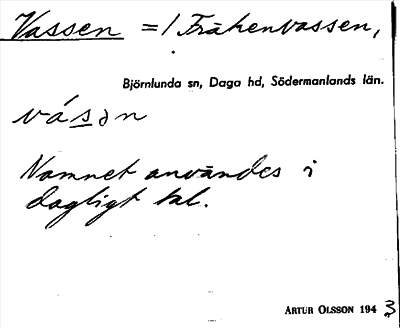 Vassen = / Fräkenvassen,
Björnlunda sn, Daga hd, Södermanlands län.
vásən
Namnet användes i
dagligt tal.
ARTUR OLSSON 1943